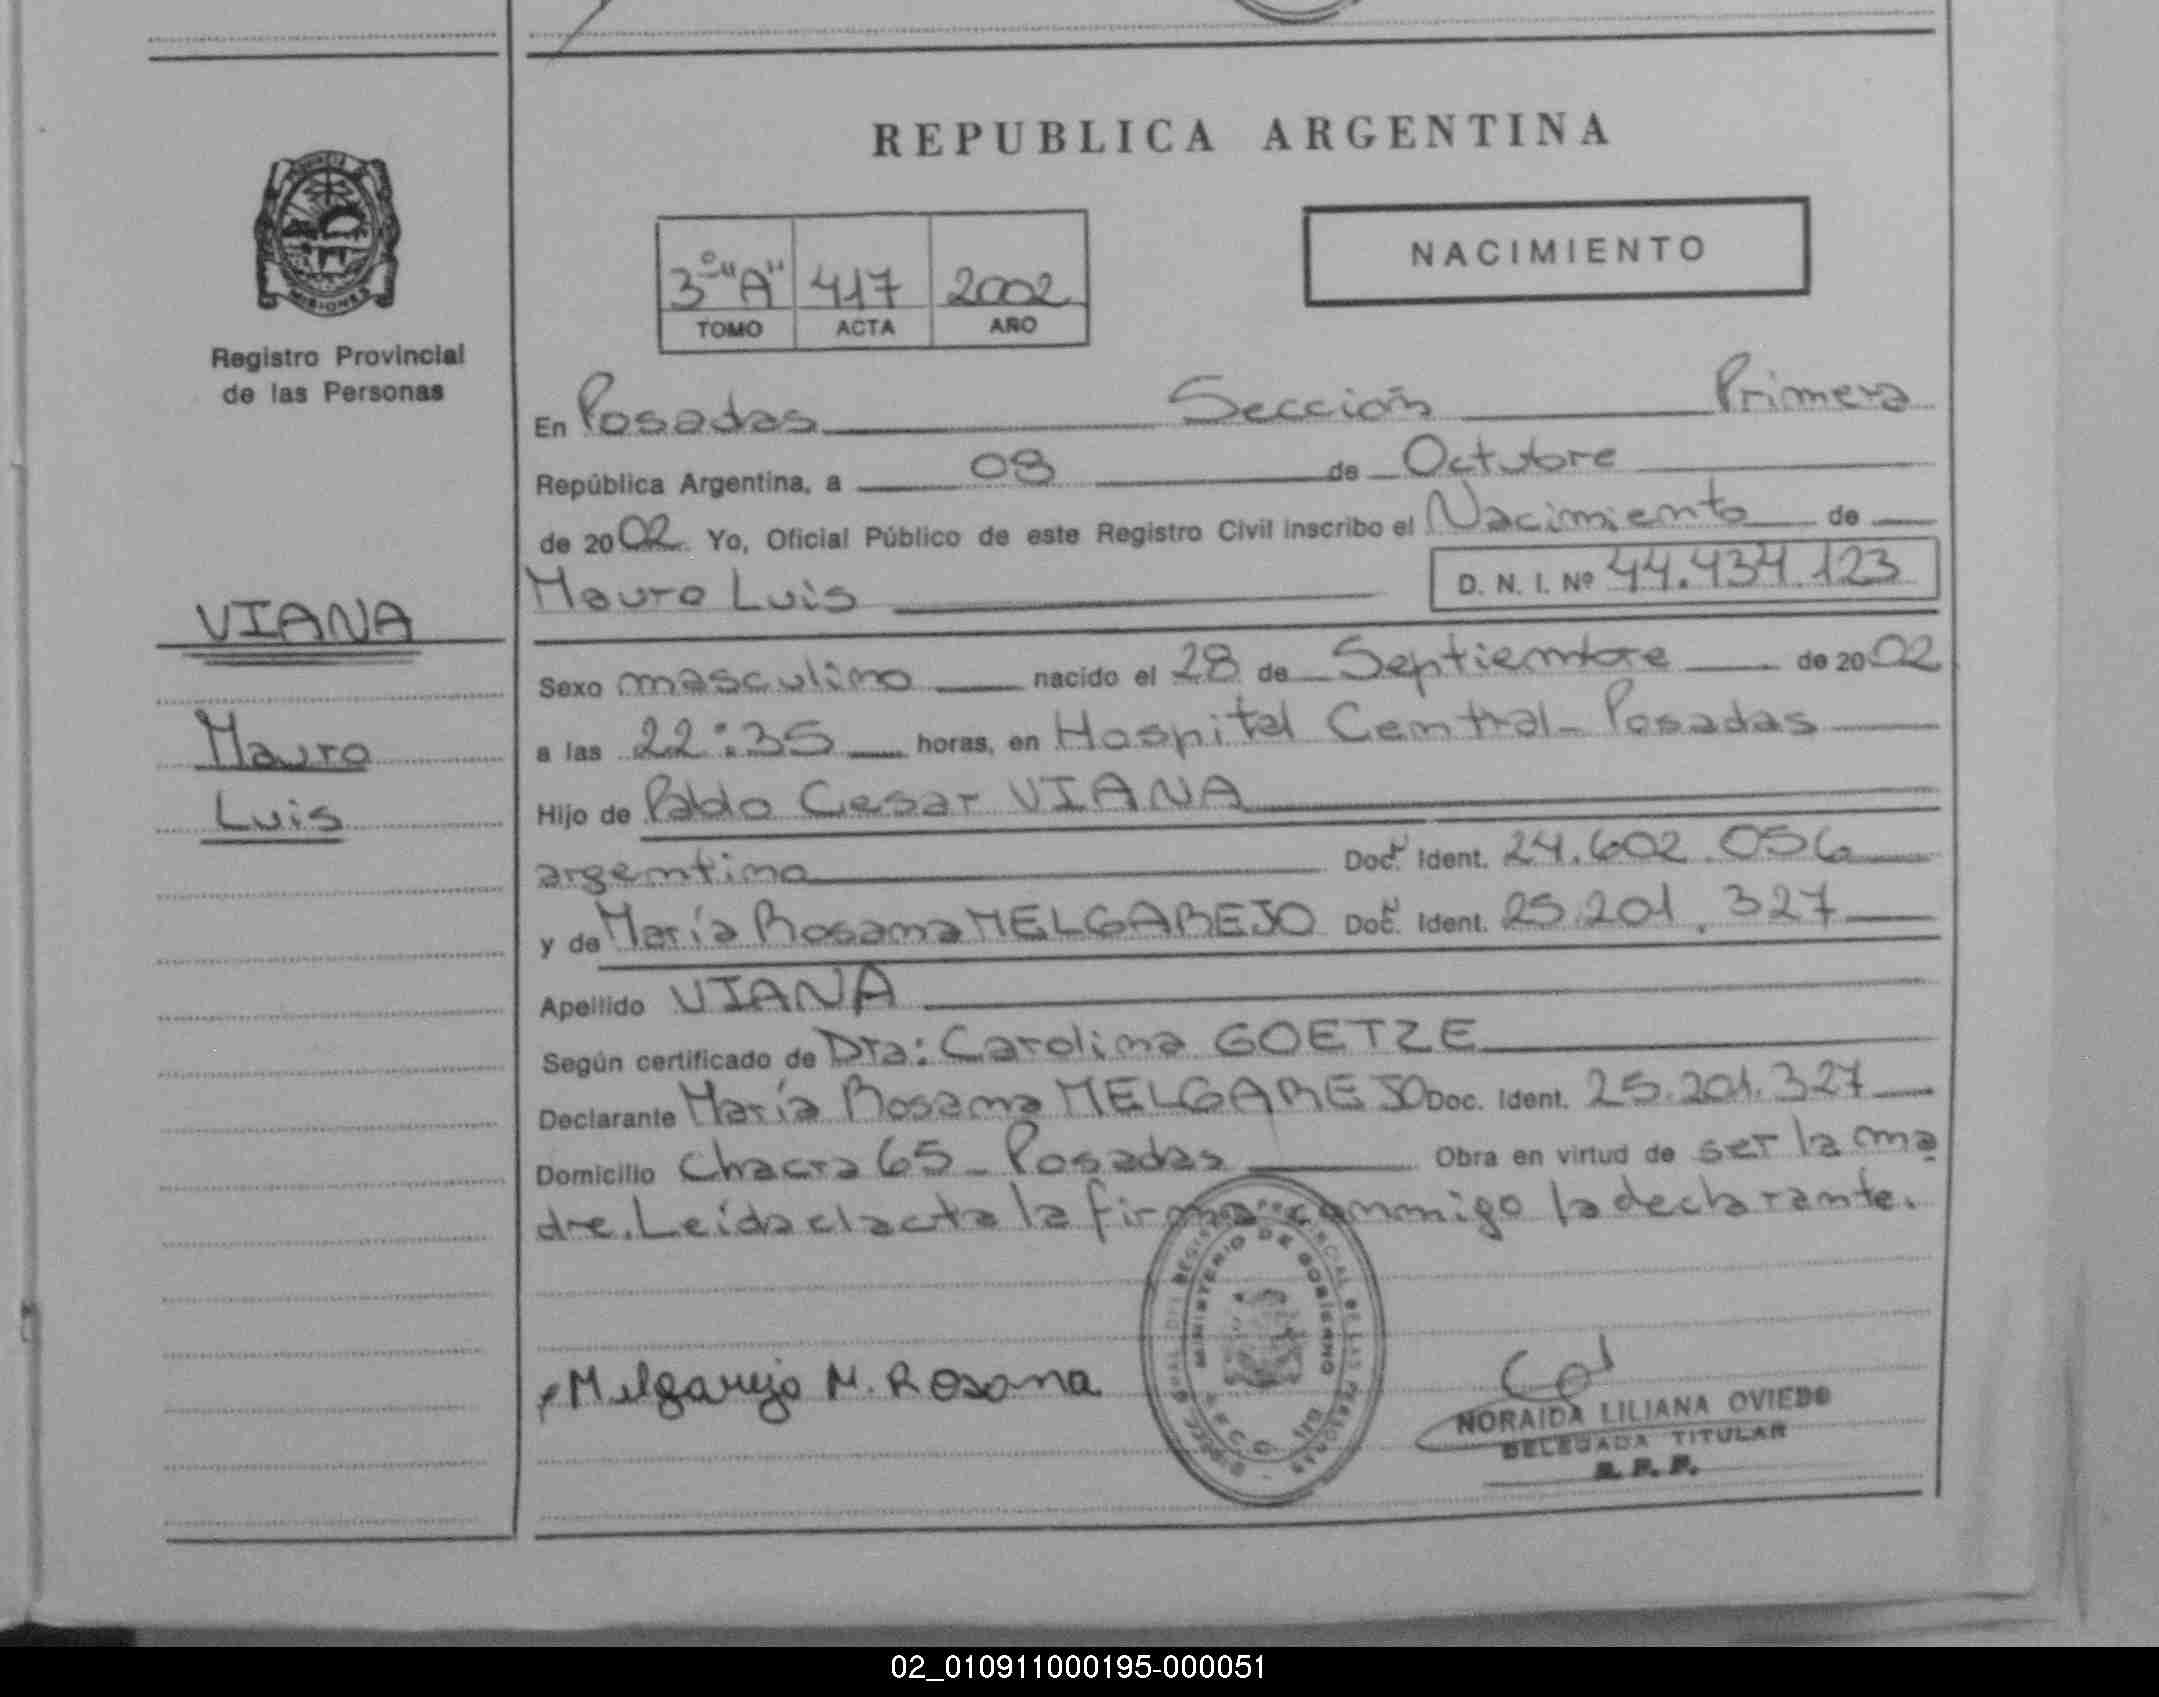 REPUBLICA ARGENTINA
NACIMIENTO
3º "A" 417 2002
TOMO ACTA AÑO
MISIONES
Registro Provincial
de las Personas
VIANA
Mauro
Luis
En Posadas Sección Primera
República Argentina, a 08 de Octubre
de 2002 Yo, Oficial Público de este Registro Civil inscribo el Nacimiento de
Mauro Luis D. N. I. Nº 44.434.123
Sexo masculino nacido el 28 de Septiembre de 2002
a las 22:35 horas, en Hospital Central - Posadas
Hijo de Pablo Cesar VIANA
argentino Doc. Ident. 24.602.056
y de María Rosana MELGAREJO Doc. Ident. 25.201.327
Apellido VIANA
Según certificado de Dra: Carolina GOETZE
Declarante María Rosana MELGAREJO Doc. Ident. 25.201.327
Domicilio Chacra 65 - Posadas Obra en virtud de ser la ma
dre. Leída el acta la firma conmigo la declarante.
MINISTERIO DE GOBIERNO
Melgarejo M. Rosana
NORAIDA LILIANA OVIEDO
DELEGADA TITULAR
R. P. P.
02_010911000195-000051